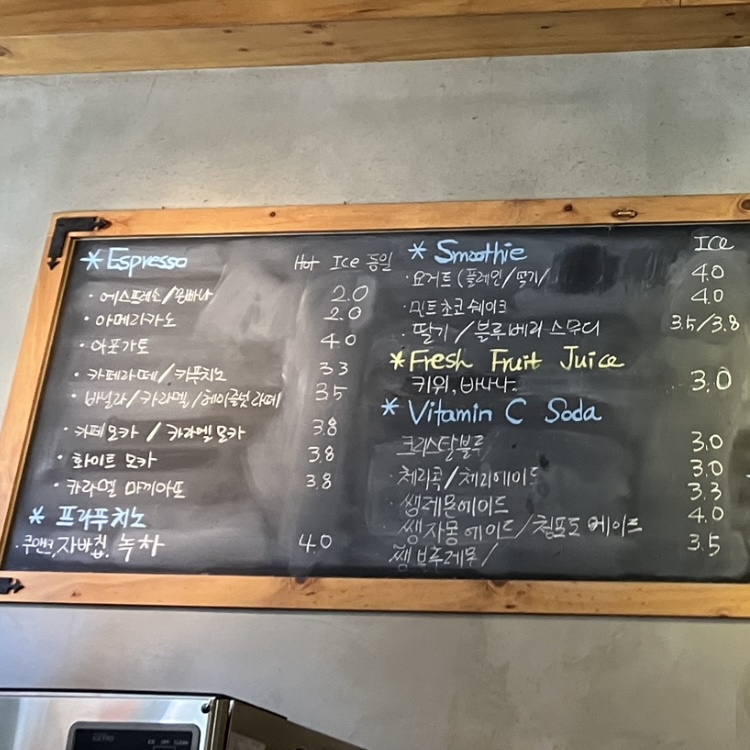 * Espresso Hot Ice 동일
· 에스프레소/꼼빠나 2.0
· 아메리카노 2.0
· 아포가토 4.0
· 카페라떼/카푸치노 3.3
· 바닐라/카라멜/헤이즐넛 라떼 3.5
· 카페모카 / 카라멜 모카 3.8
· 화이트 모카 3.8
· 카라멜 마끼아또 3.8
* 프라푸치노
· 쿠앤크, 자바칩, 녹차 4.0
* Smoothie ICE
· 요거트 (플레인/딸기/ 4.0
· 민트초코 쉐이크 4.0
· 딸기 / 블루베리 스무디 3.5/3.8
* Fresh Fruit Juice
키위, 바나나. 3.0
* Vitamin C Soda
크리스탈블루 3.0
· 체리콕/체리에이드 3.0
· 쌩레몬에이드 3.3
· 쌩자몽에이드/청포도 에이드 4.0
쌩 블루레몬/ 3.5